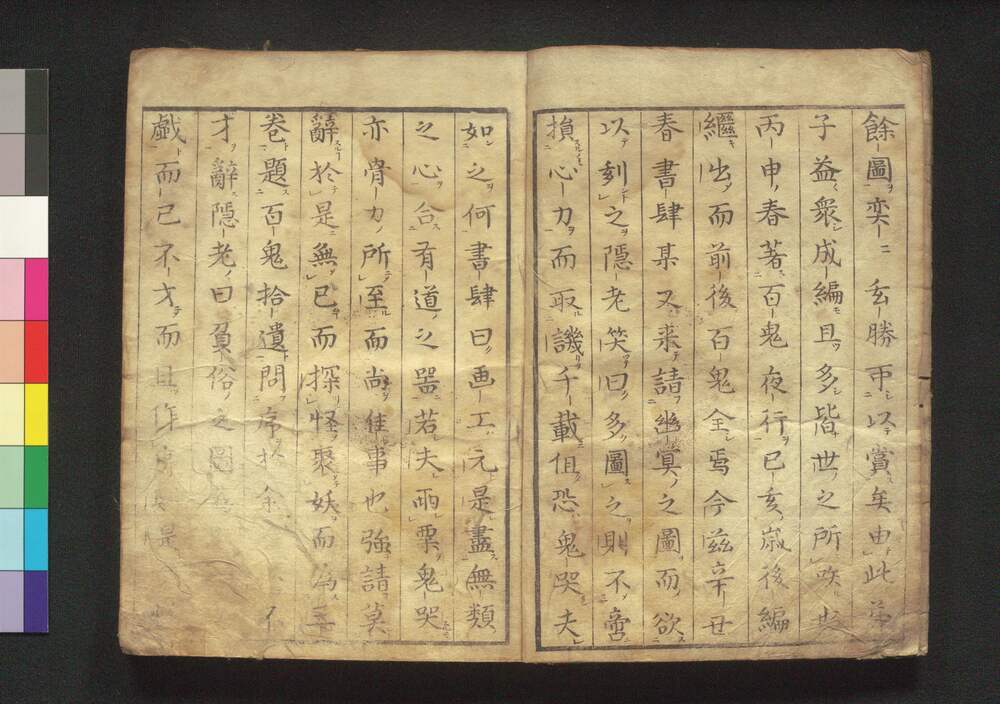 餘圖奕二玄勝帀以賞矣由此弟
子益衆成編且多皆世之所吹也
丙申春著百鬼夜行已亥歳後編
繼出而前後百鬼全焉今茲辛丑
春書肆某又来請幽冥之圖而欲
以刻之隱老笑曰多圖之則不啻
損心力而取譏千載但恐鬼哭夫
如之何書肆曰画工元是盡無類
之心合有道之器若夫雨粟鬼哭
亦骨力所至而尚佳事也強請莫
辭於是無已而探怪聚妖而為三
巻題百鬼拾遺問序於余 不
才辭隱老曰負俗之圖
戯而已不才而且作 是